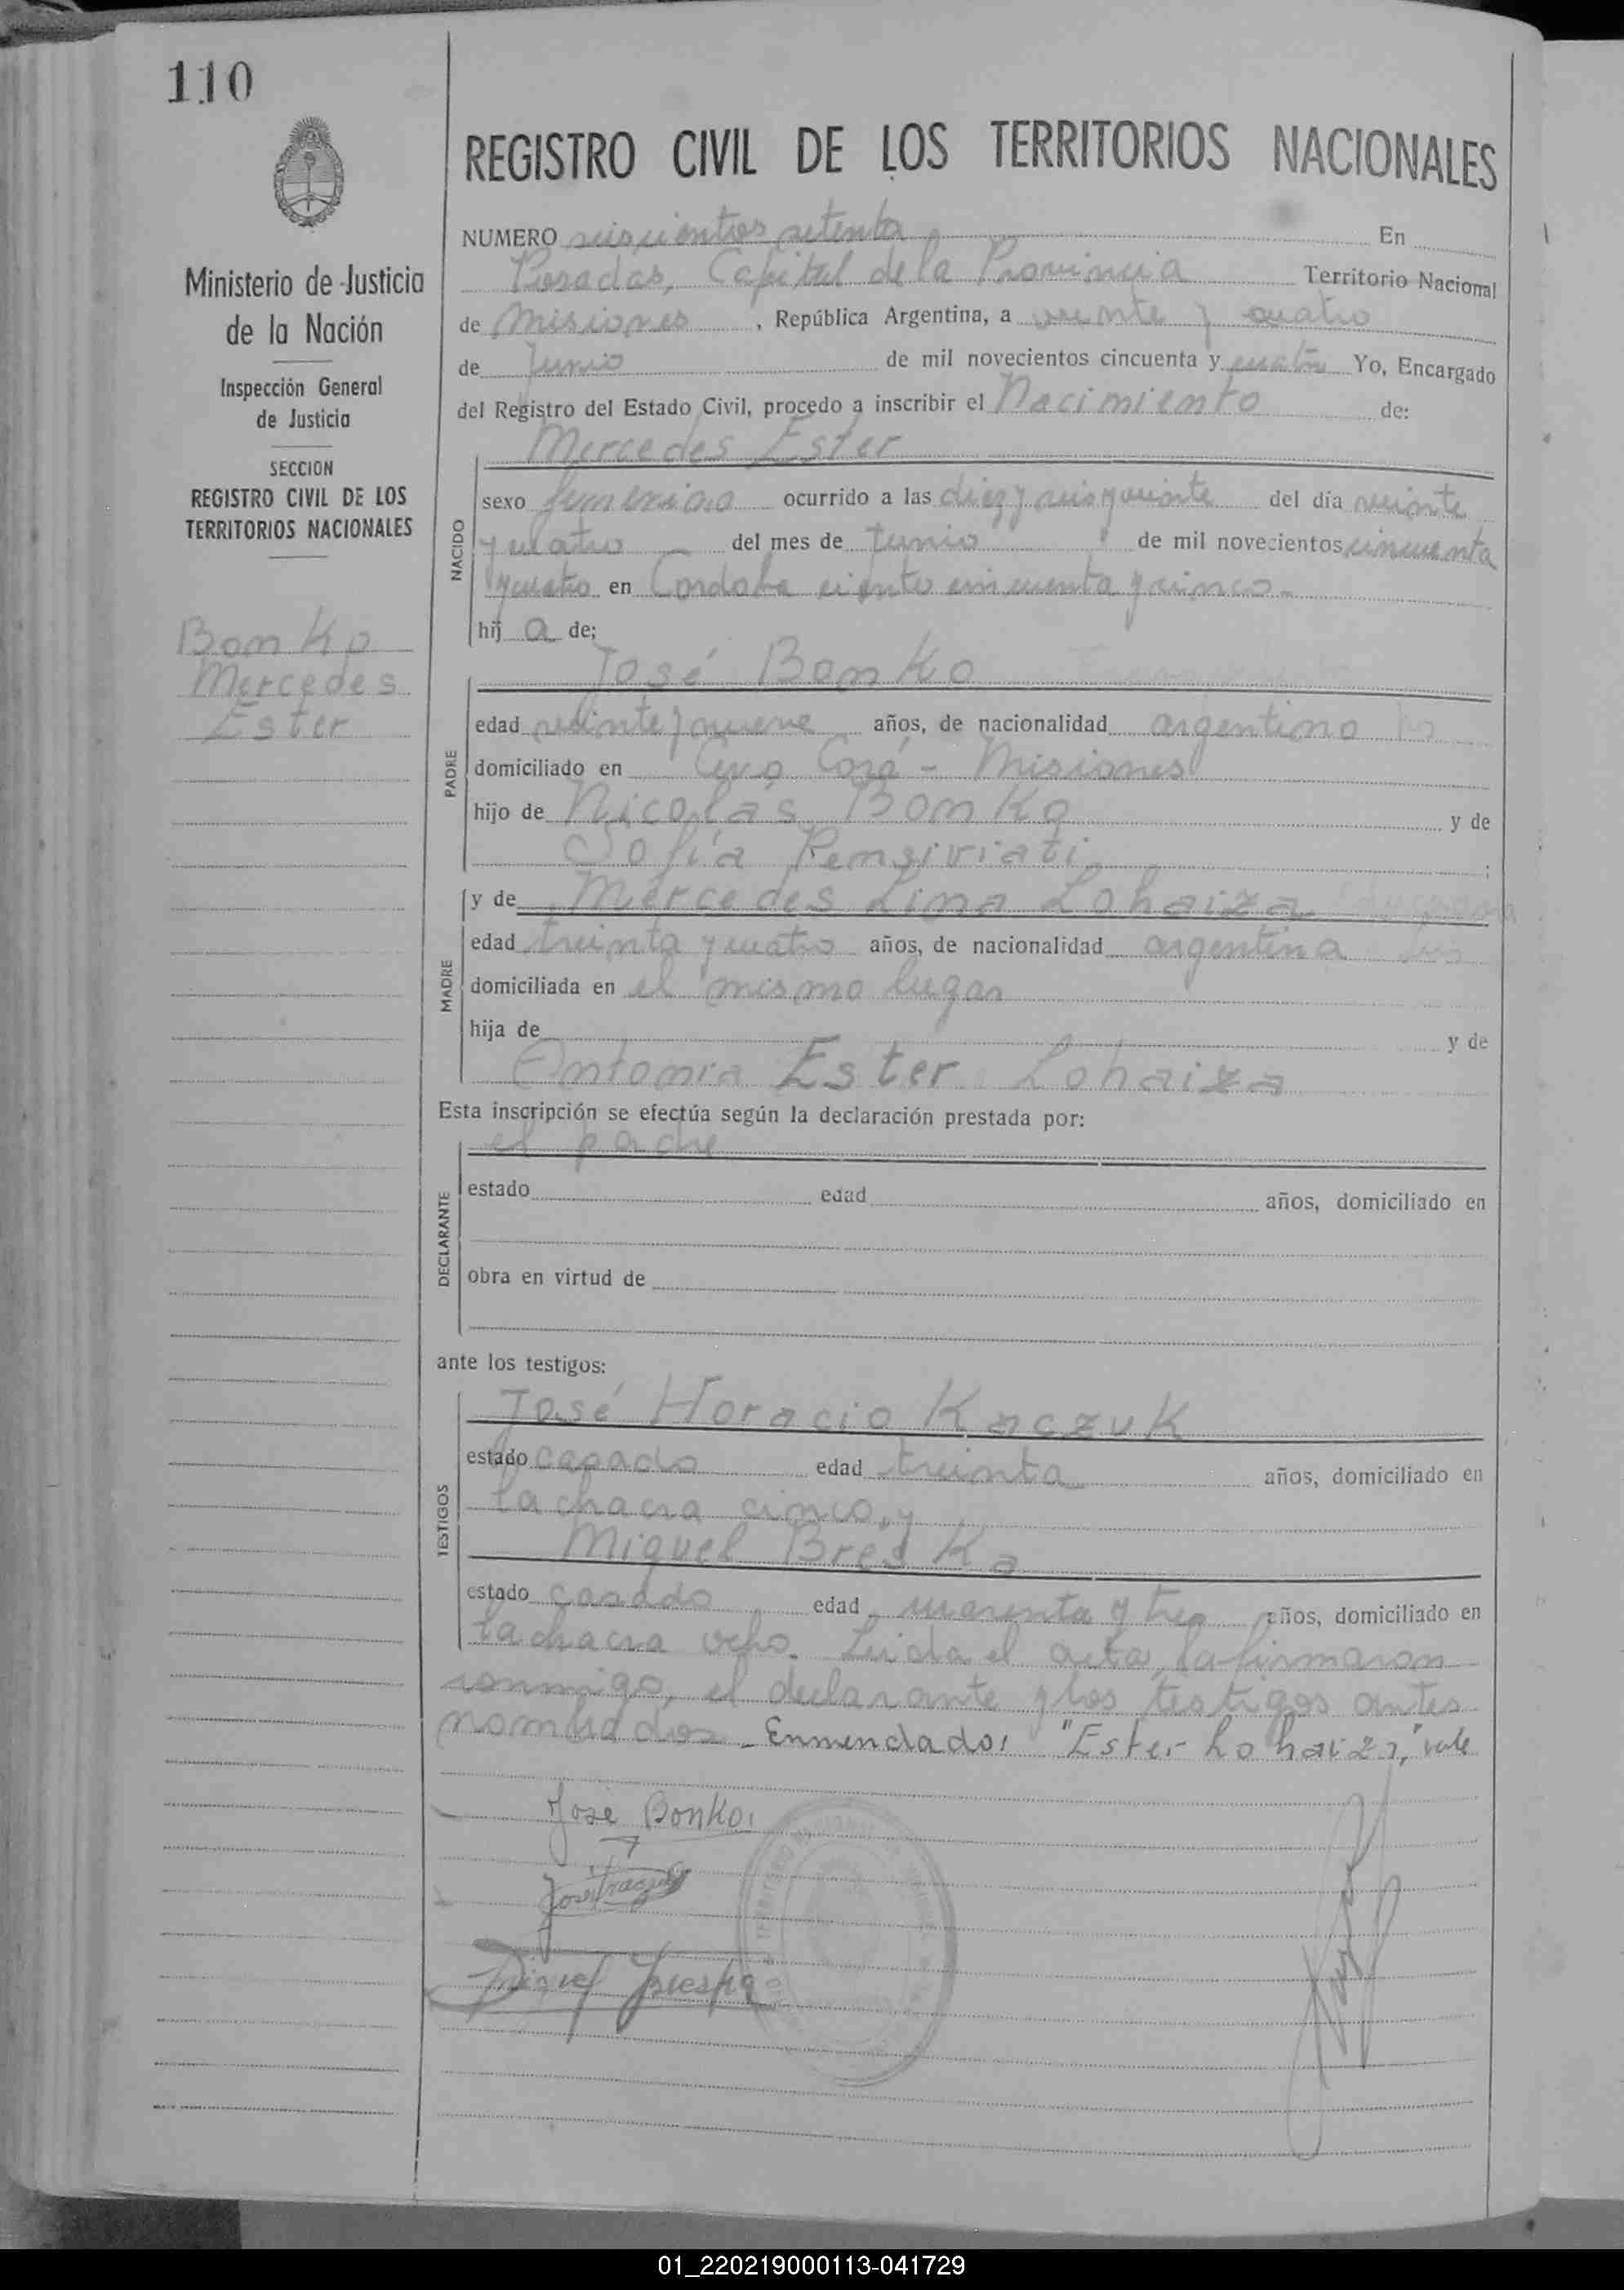 110
REGISTRO CIVIL DE LOS TERRITORIOS NACIONALES
Ministerio de Justicia
de la Nación
Inspección General
de Justicia
SECCION
REGISTRO CIVIL DE LOS
TERRITORIOS NACIONALES
Bonko
Mercedes
Ester
NUMERO seiscientos setenta En
Posadas, Capital de la Provincia Territorio Nacional
de Misiones, República Argentina, a veinte y cuatro
de Junio de mil novecientos cincuenta y cuatro Yo, Encargado
del Registro del Estado Civil, procedo a inscribir el Nacimiento de:
Mercedes Ester
NACIDO
sexo femenino ocurrido a las diez y seis y veinte del día veinte
y cuatro del mes de Junio de mil novecientos cincuenta
y cuatro en Cordoba ciento cincuenta y cinco
hij a de;
José Bonko
PADRE
edad veinte y nueve años, de nacionalidad argentino
domiciliado en Cerro Corá - Misiones
hijo de Nicolás Bonko y de
Sofía
y de Mercedes Lina Lohaiza
MADRE
edad treinta y cuatro años, de nacionalidad argentina
domiciliada en el mismo lugar
hija de y de
Antonia Ester Lohaiza
Esta inscripción se efectúa según la declaración prestada por:
el padre
DECLARANTE
estado edad años, domiciliado en
obra en virtud de
ante los testigos:
José Horacio Kaczuk
TESTIGOS
estado casado edad treinta años, domiciliado en
la chacra cinco, y
Miguel Breska
estado casado edad cuarenta y tres años, domiciliado en
la chacra ocho. Leida el acta, la firmaron
conmigo, el declarante y los testigos antes
nombrados. Enmendado: "Ester Lohaiza," vale
José Bonko
01_220219000113-041729